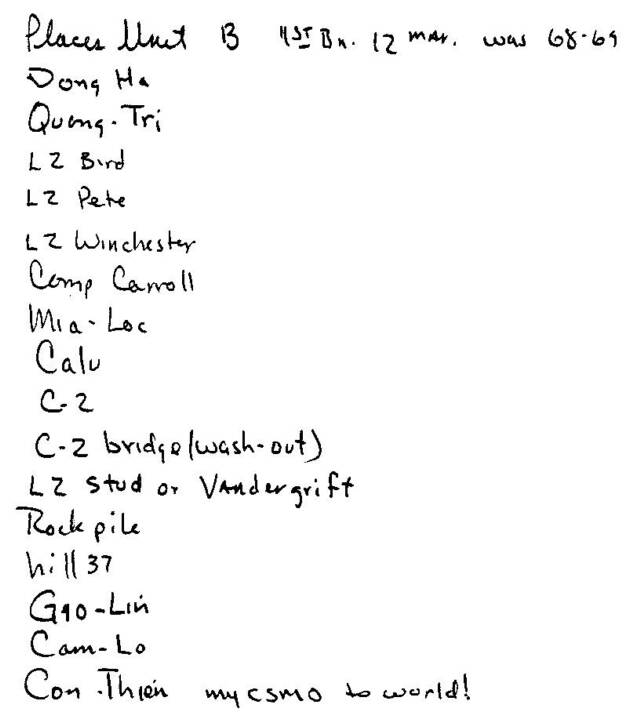 Places Unit B 1st Bn. 12 mar. was 68-69
Dong Ha
Quang-Tri
LZ Bird
LZ Pete
LZ Winchester
Camp Carroll
Mia-Loc
Calu
C-2
C-2 bridge (wash-out)
LZ Stud or Vandergrift
Rock pile
hill 37
Gio-Lin
Cam-Lo
Con-Thien my csmo to world!